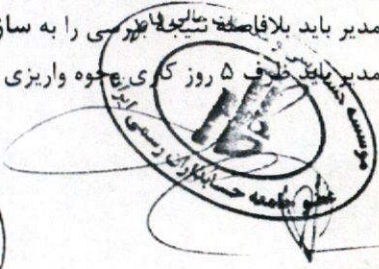 مدیر باید بلافاصله نتیجه بررسی را به ساز
مدیر باید ظرف ۵ روز کاری وجوه واریزی
موسسه حسا
عضو جامعه حسابداران رسمی ایران